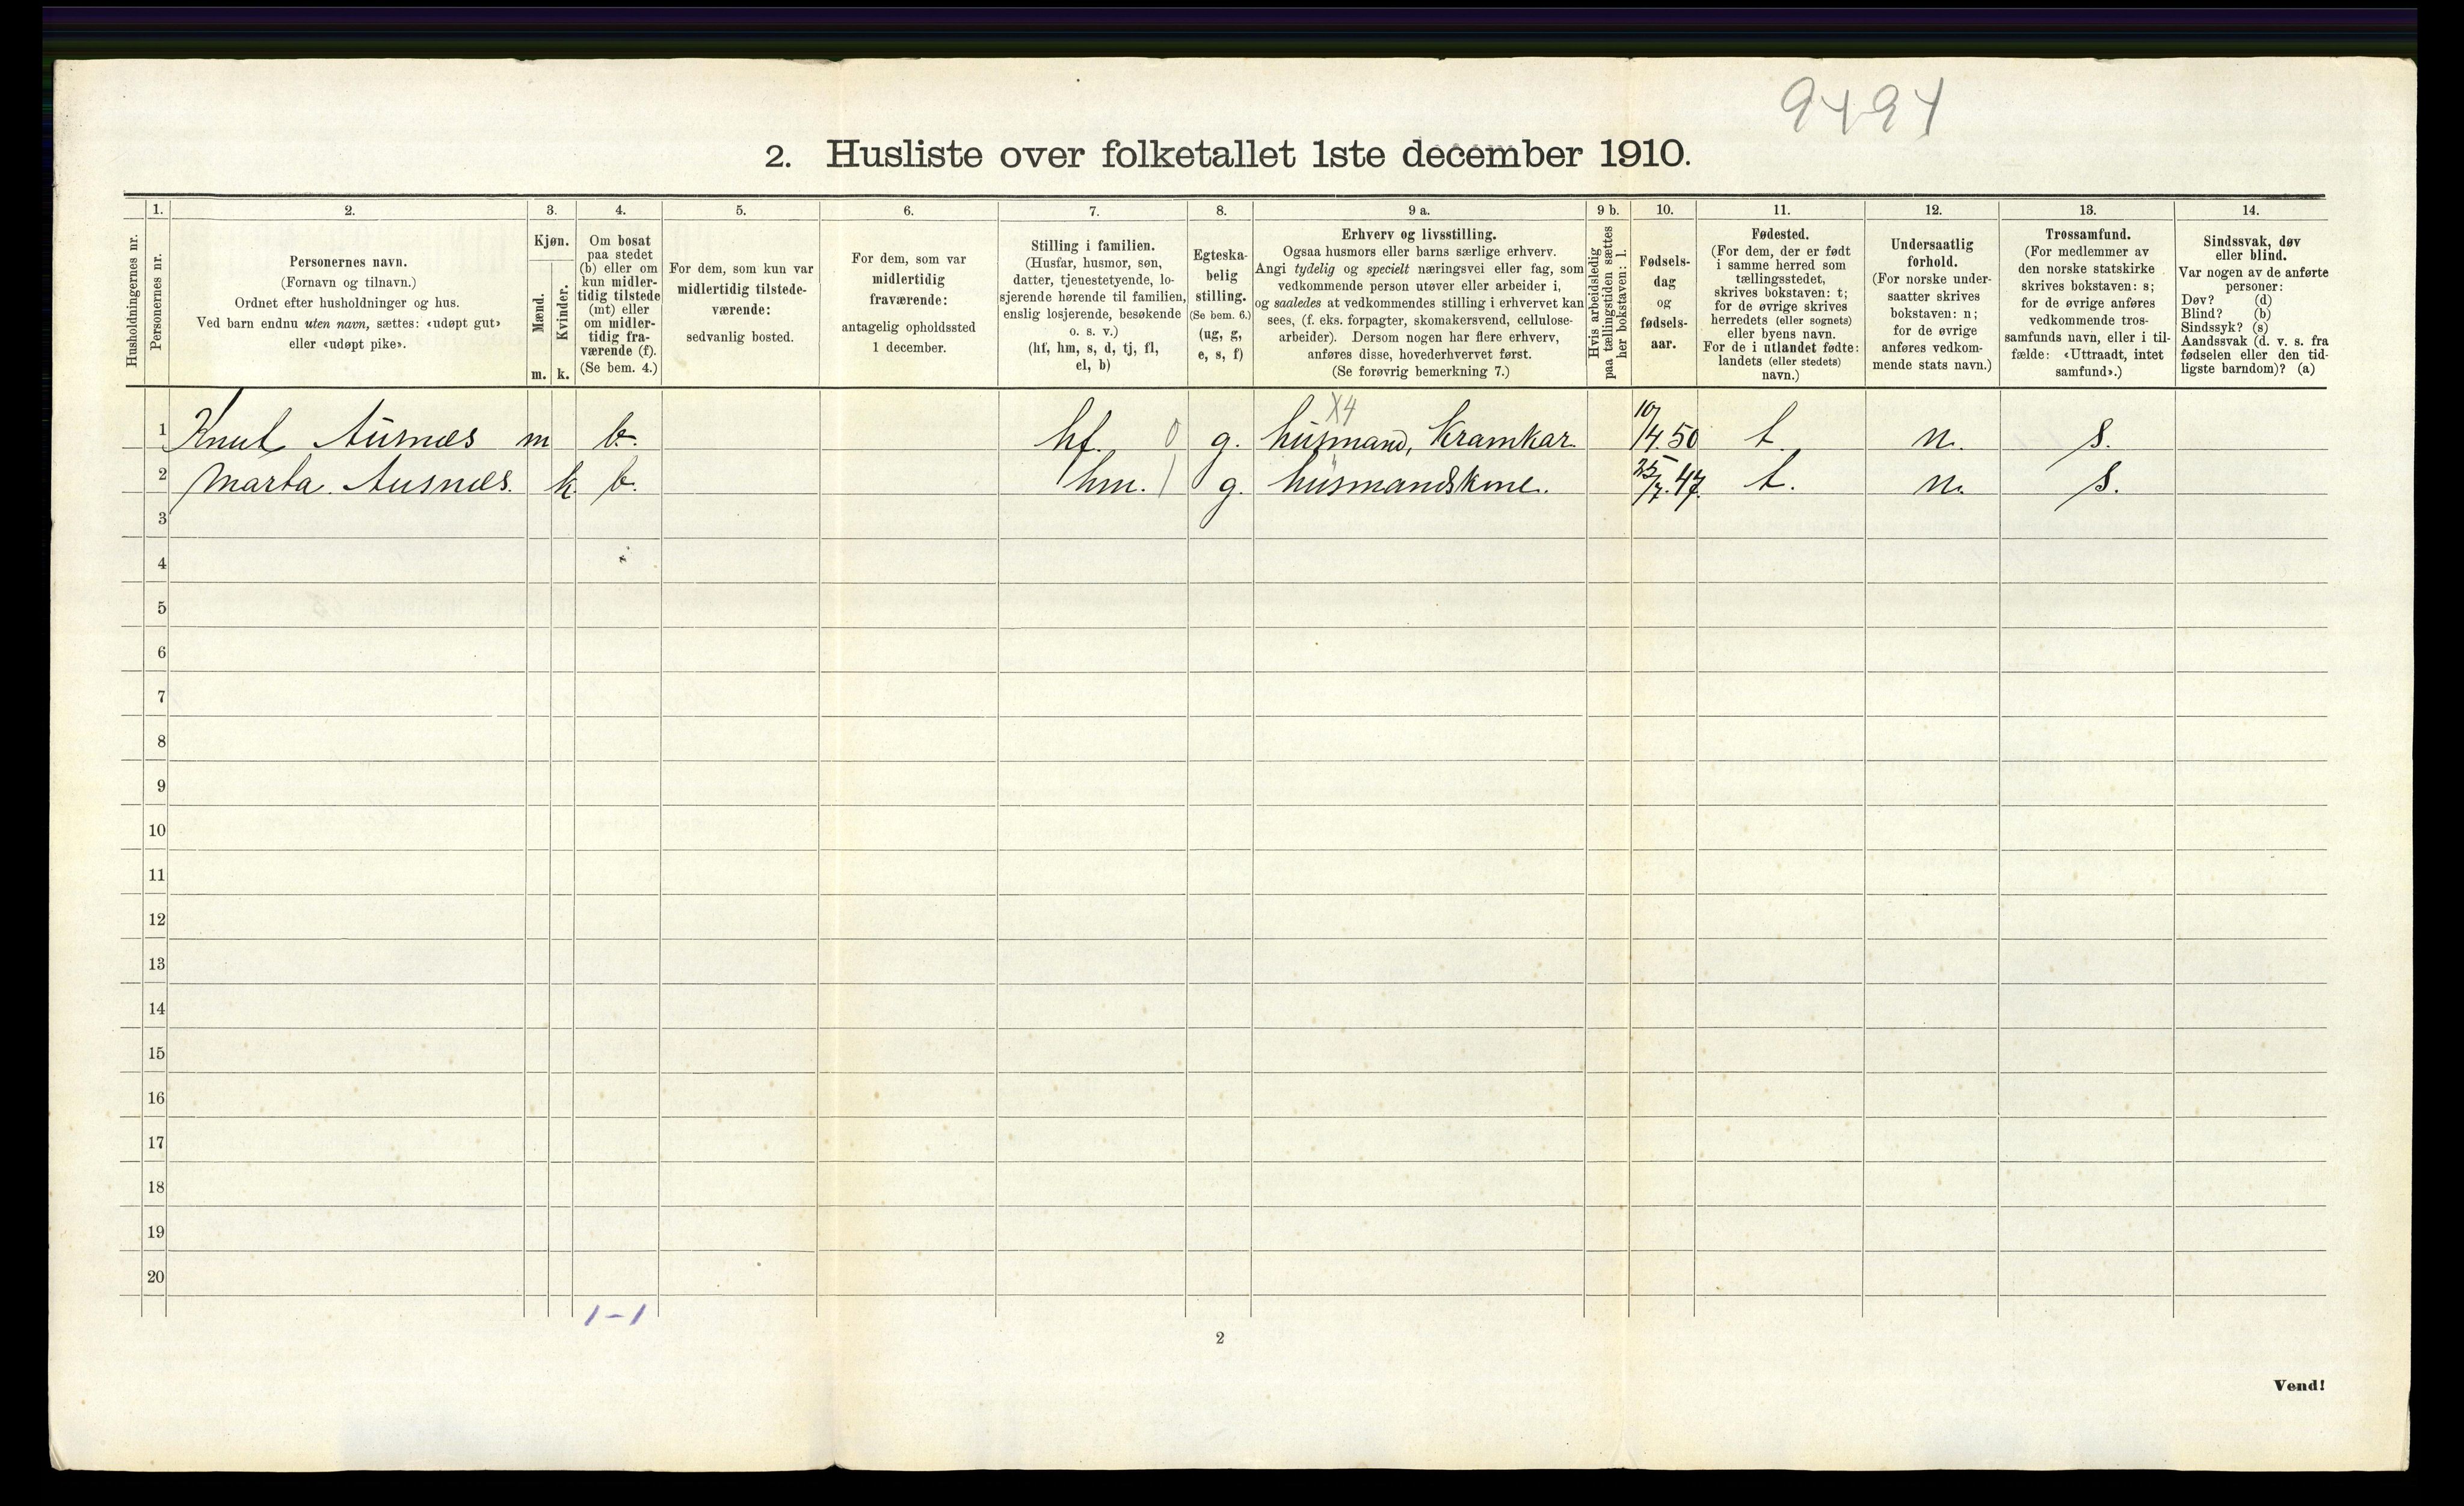 9494
2. Husliste over folketallet 1ste december 1910.
Husholdningernes nr.
1.
Personernes nr.
2.
Personernes navn.
(Fornavn og tilnavn.)
Ordnet efter husholdninger og hus.
Ved barn endnu uten navn, sættes: «udøpt gut»
eller «udøpt pike».
3.
Kjøn.
Mænd.
m.
Kvinder.
k.
4.
Om bosat
paa stedet
(b) eller om
kun midler-
tidig tilstede
(mt) eller
om midler-
tidig fra-
værende (f).
(Se bem. 4.)
5.
For dem, som kun var
midlertidig tilstede-
værende:
sedvanlig bosted.
6.
For dem, som var
midlertidig
fraværende:
antagelig opholdssted
1 december.
7.
Stilling i familien.
(Husfar, husmor, søn,
datter, tjenestetyende, lo-
sjerende hørende til familien,
enslig losjerende, besøkende
o. s. v.)
(hf, hm, s, d, tj, fl,
el, b)
8.
Egteska-
belig
stilling.
(Se bem. 6.)
(ug, g,
e, s, f)
9 a.
Erhverv og livsstilling.
Ogsaa husmors eller barns særlige erhverv.
Angi tydelig og specielt næringsvei eller fag, som
vedkommende person utøver eller arbeider i,
og saaledes at vedkommendes stilling i erhvervet kan
sees, (f. eks. forpagter, skomakersvend, cellulose-
arbeider). Dersom nogen har flere erhverv,
anføres disse, hovederhvervet først.
(Se forøvrig bemerkning 7.)
9 b.
Hvis arbeidsledig
paa tællingstiden sættes
her bokstaven: l.
10.
Fødsels-
dag
og
fødsels-
aar.
11.
Fødested.
(For dem, der er født
i samme herred som
tællingsstedet,
skrives bokstaven: t;
for de øvrige skrives
herredets (eller sognets)
eller byens navn.
For de i utlandet fødte:
landets (eller stedets)
navn.)
12.
Undersaatlig
forhold.
(For norske under-
saatter skrives
bokstaven: n;
for de øvrige
anføres vedkom-
mende stats navn.)
13.
Trossamfund.
(For medlemmer av
den norske statskirke
skrives bokstaven: s;
for de øvrige anføres
vedkommende tros-
samfunds navn, eller i til-
fælde: «Uttraadt, intet
samfund».)
14.
Sindssvak, døv
eller blind.
Var nogen av de anførte
personer:
Døv? (d)
Blind? (b)
Sindssyk? (s)
Aandssvak (d. v. s. fra
fødselen eller den tid-
ligste barndom)? (a)
X4
1 Knut Ausnæs m b. hf. 0 g. husmand, Kramkar. 10/4 50 t. n. s.
2 Marta Ausnæs. k. b. hm. 1 g. husmandskone. 25/7. 47. t. n. s.
3
4
5
6
7
8
9
10
11
12
13
14
15
16
17
18
19
20
1 - 1
2
Vend!